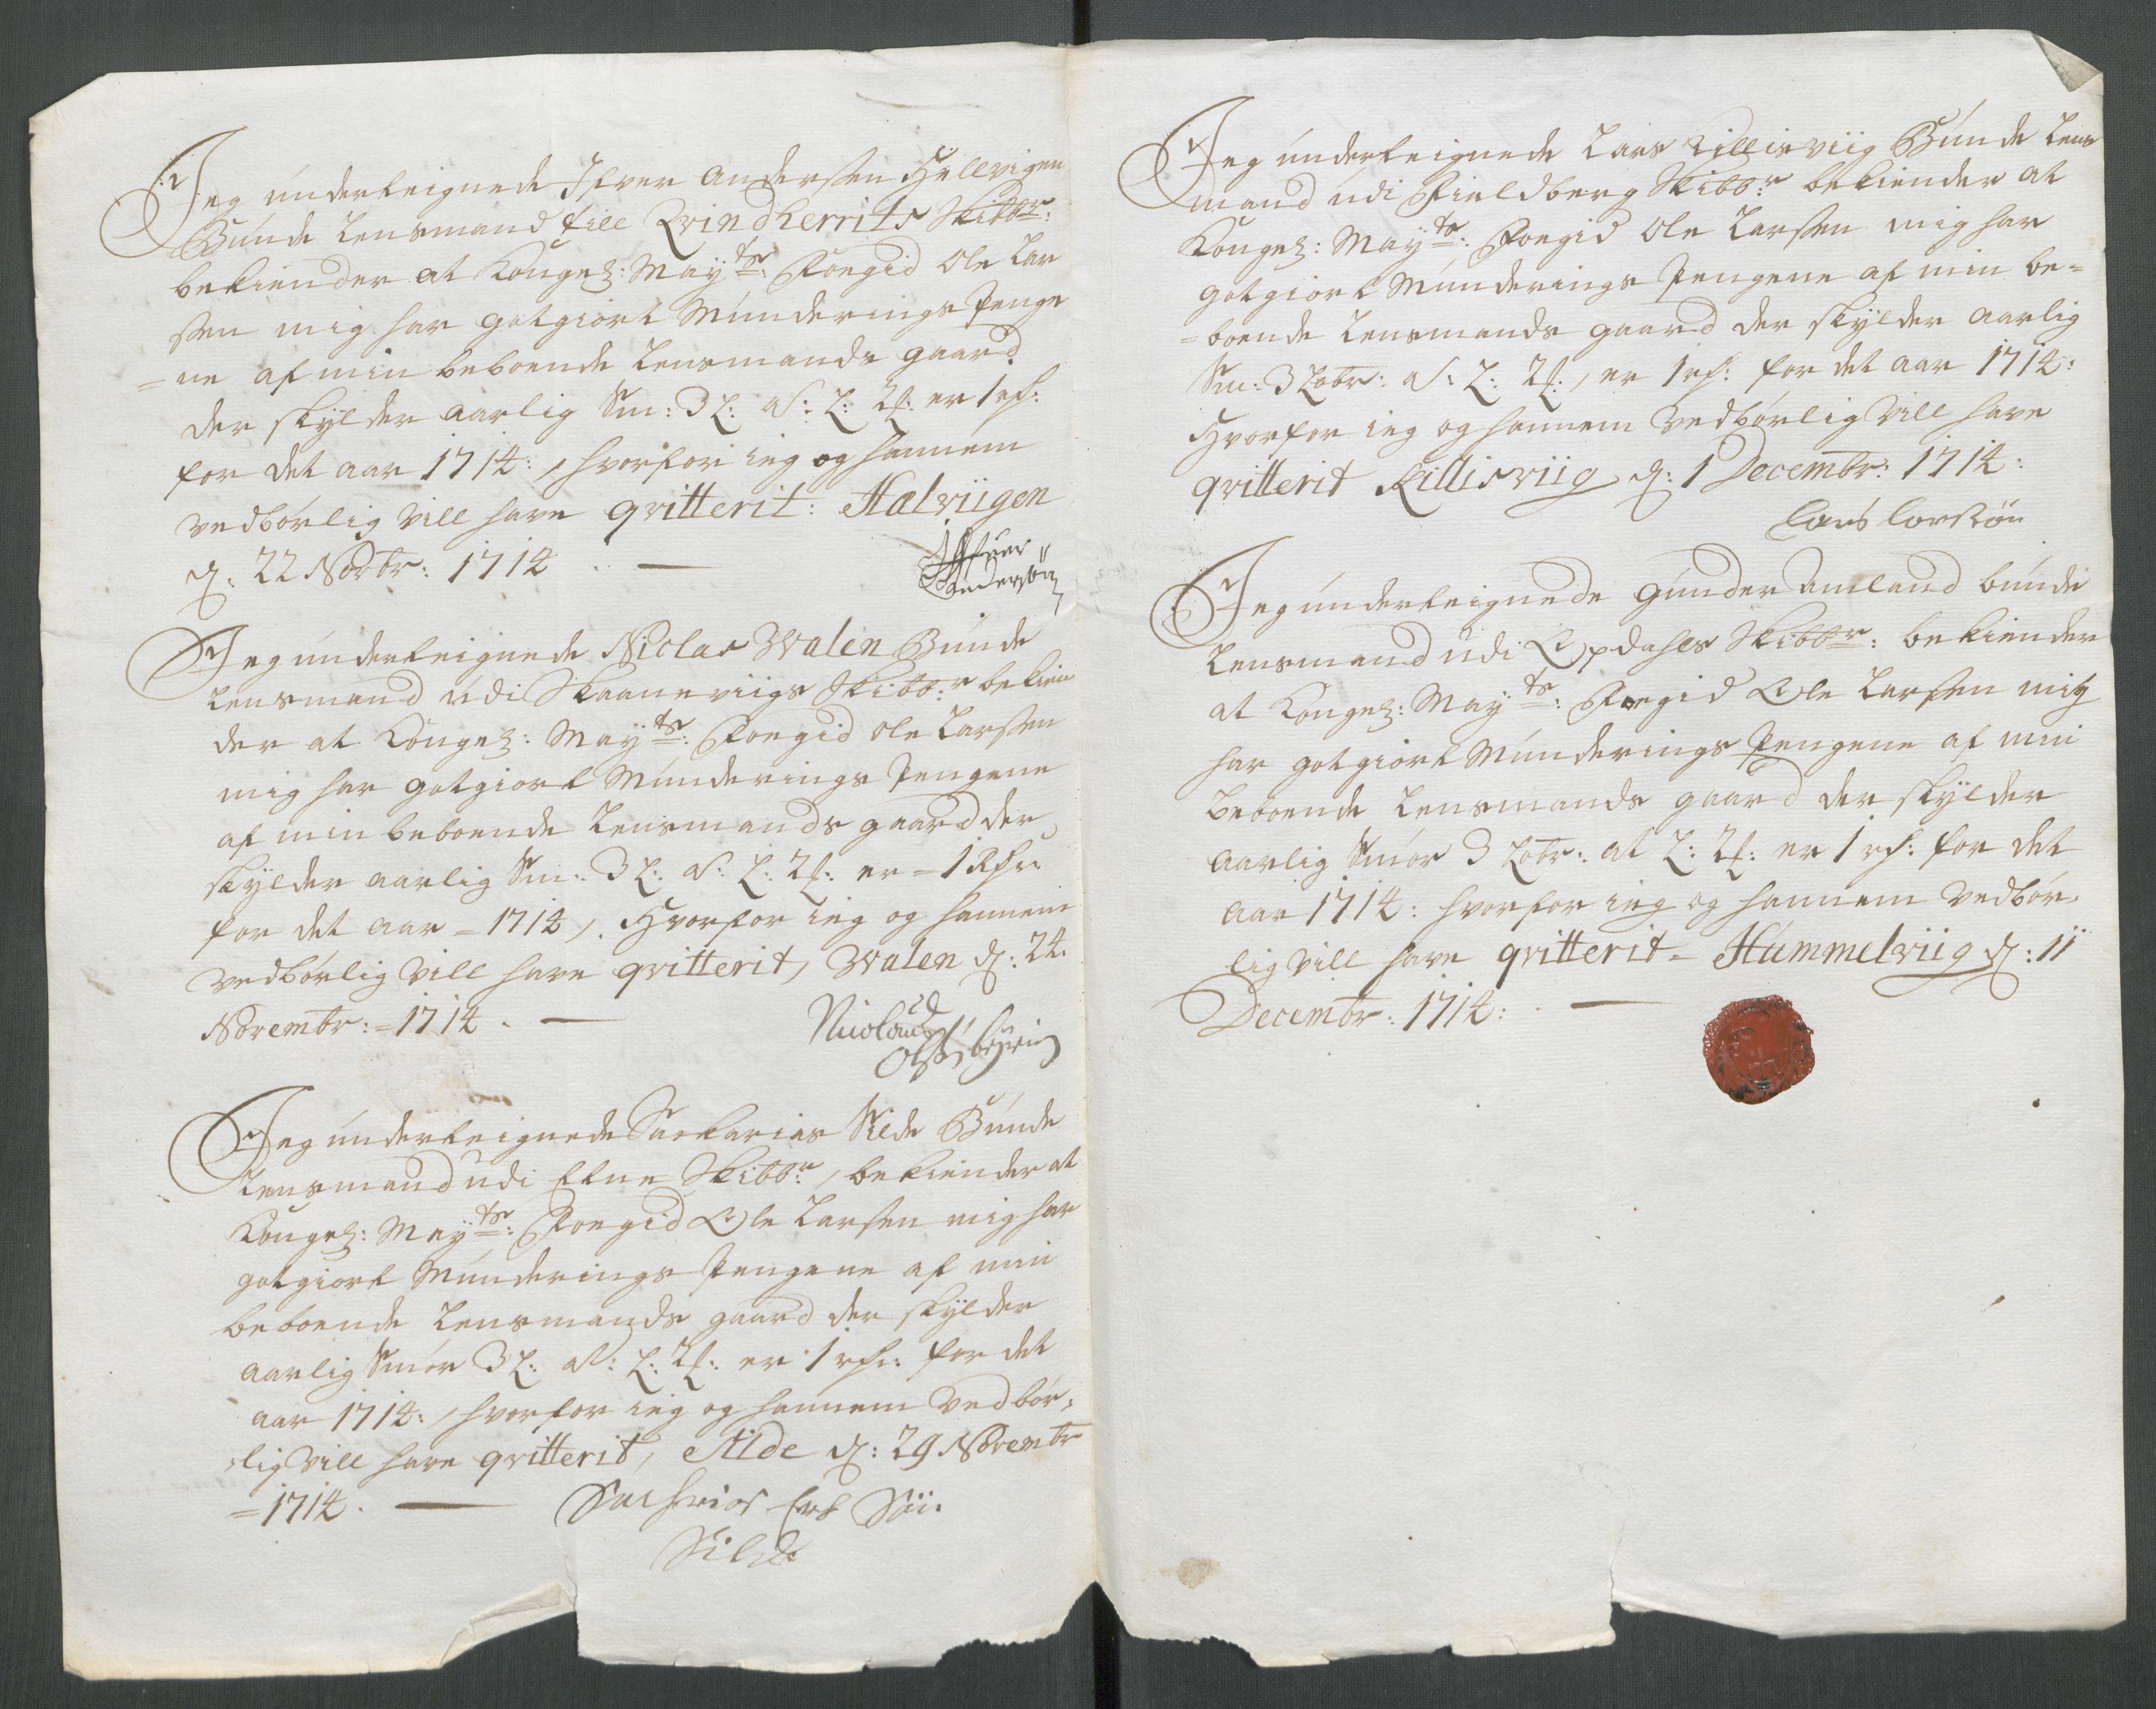 Jeg underteignede Ifver Andersen Hellvigen
Bunde Lensmand till Qvindherrits Skibbr:
bekiender at Kongel: Mayts: Foegid Ole Lar
sen mig har gotgiort Munderings Penge
=ne af min beboende Lensmands gaard
der skylder aarlig Sm: 3 L: a L: 2 s: er 1 rs:
for det aar 1714:, hvorfor ieg og hannem
vedbørlig vill have qvitterit: Halviigen
d: 22 Novbr: 1714 —
Iffuer
Andersøn
Jeg underteignede Niclas Walen Bunde
Lensmand udi Skaaneviigs Skibbr: bekien
der at Kongel: Mayts: Foegid Ole Larsen
mig har gotgiort Munderings Pengene
af min beboende Lensmands gaard der
skylder aarlig Sm: 3 L: a L: 2 s: er = 1 Rs:
for det aar = 1714, Hvorfor ieg og hannem
vedbørlig vill have qvitterit, Walen d: 24.
Novembr: = 1714. —
Nicolaus
Jeg underteignede Sackarias Silde Bunde
Lensmand udi Etne Skibbr:, bekiender at
Kongel: Mayts: Foegid Ole Larsen mig har
gotgiort Munderings Pengene af min
beboende Lensmands gaard der skylder
aarlig Smør 3 L: a L: 2 s: er 1 rs: for det
aar 1714:, hvorfor ieg og hannem vedbør=
=lig vill have qvitterit, Silde d: 29 Novembr
=1714. — Sachrias Ers Søn
Silde
Jeg underteignede Lars Killisviig Bunde Lens
mand udi Fieldberg Skibbr: bekiender at
Kongel: Mayts: Foegid Ole Larsen mig har
gotgiort Munderings Pengene af min be=
=boende Lensmands gaard der skylder aarlig
Sm: 3 Løbr: a L: 2 s:, er 1 rs: for det aar 1714:
Hvorfor ieg og hannem vedbørlig vill have
qvitterit Killisviig d: 1 Decembr: 1714:
Lars Larssøn
Jeg underteignede Gunder Amland bunde
Lensmand udi Opdahls Skibbr: bekiender
at Kongel: Mayts: Foegid Ole Larsen mig
har gotgiort Munderings Pengene af min
beboende Lensmands gaard der skylder
aarlig Smør 3 Løbr: at L: 2 s: er 1 rs: for det
aar 1714: hvorfor ieg og hannem vedbør=
lig vill have qvitterit = Hummelviig d: 11
Decembr: 1714: —